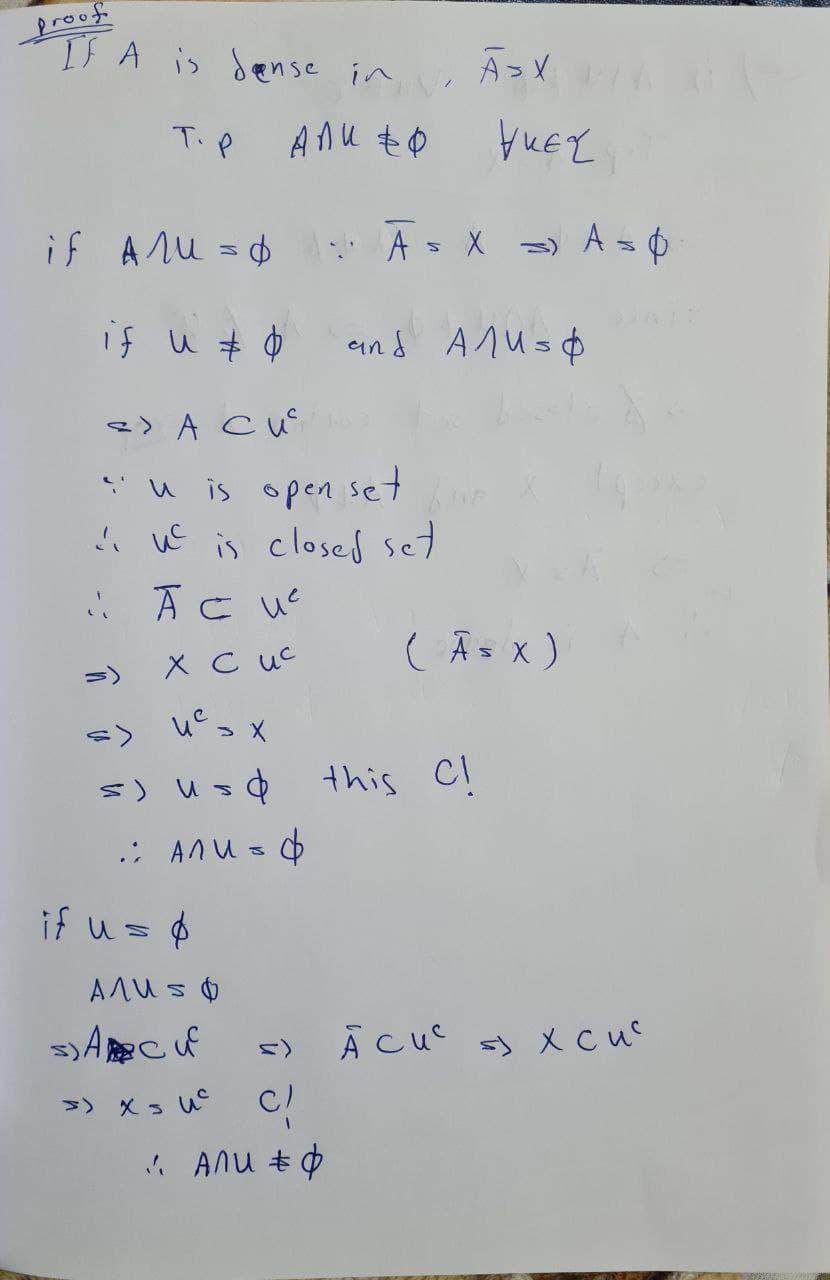 proof
If A is dense in , Ā = X
T.p A∩U ≠ ϕ ∀U∈τ
if A∩U = ϕ ∵ Ā = X => A = ϕ
if U ≠ ϕ and A∩U = ϕ
=> A ⊂ Uᶜ
∵ U is open set
∴ Uᶜ is closed set
∴ Ā ⊂ Uᶜ
=> X ⊂ Uᶜ ( Ā = X )
=> Uᶜ = X
=> U = ϕ this C!
∴ A∩U = ϕ
if U = ϕ
A∩U = ϕ
=> A ⊂ Uᶜ => Ā ⊂ Uᶜ => X ⊂ Uᶜ
=> X = Uᶜ C!
∴ A∩U ≠ ϕ